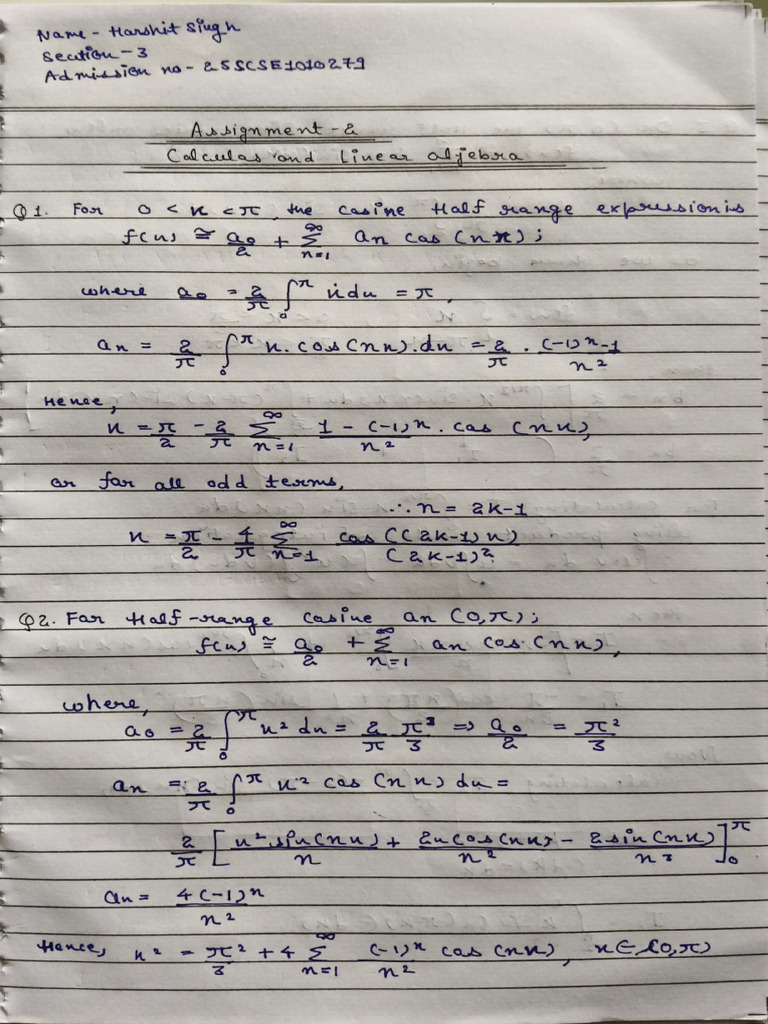 Name - Harshit Singh
Section - 3
Admission no - 25SCSE1010279
Assignment - 2
Calculas and Linear aljebra
Q1. For 0 < x < π, the cosine Half range expression is
f(x) ≅ a₀/2 + ∑_{n=1}^{∞} an cos (nx) ;
where a₀ = 2/π ∫₀^π x dx = π,
an = 2/π ∫₀^π x. cos(nx).dx = 2/π . (-1)ⁿ-1/n²
Hence,
x = π/2 - 2/π ∑_{n=1}^{∞} 1 - (-1)ⁿ/n² . cos (nx),
or for all odd terms,
∴ n = 2k-1
x = π/2 - 4/π ∑_{n=1}^{∞} cos ((2k-1)x)/(2k-1)²
Q2. For Half-range cosine on (0,π);
f(x) ≅ a₀/2 + ∑_{n=1}^{∞} an cos (nx),
where,
a₀ = 2/π ∫₀^π x² dx = 2/π π³/3 => a₀/2 = π²/3
an = 2/π ∫₀^π x² cos (nx) dx =
2/π [x² sin(nx)/n + 2x cos(nx)/n² - 2 sin(nx)/n³]₀^π
an = 4(-1)ⁿ/n²
Hence, x² = π²/3 + 4 ∑_{n=1}^{∞} (-1)ⁿ/n² cos (nx), x ∈ (0,π)